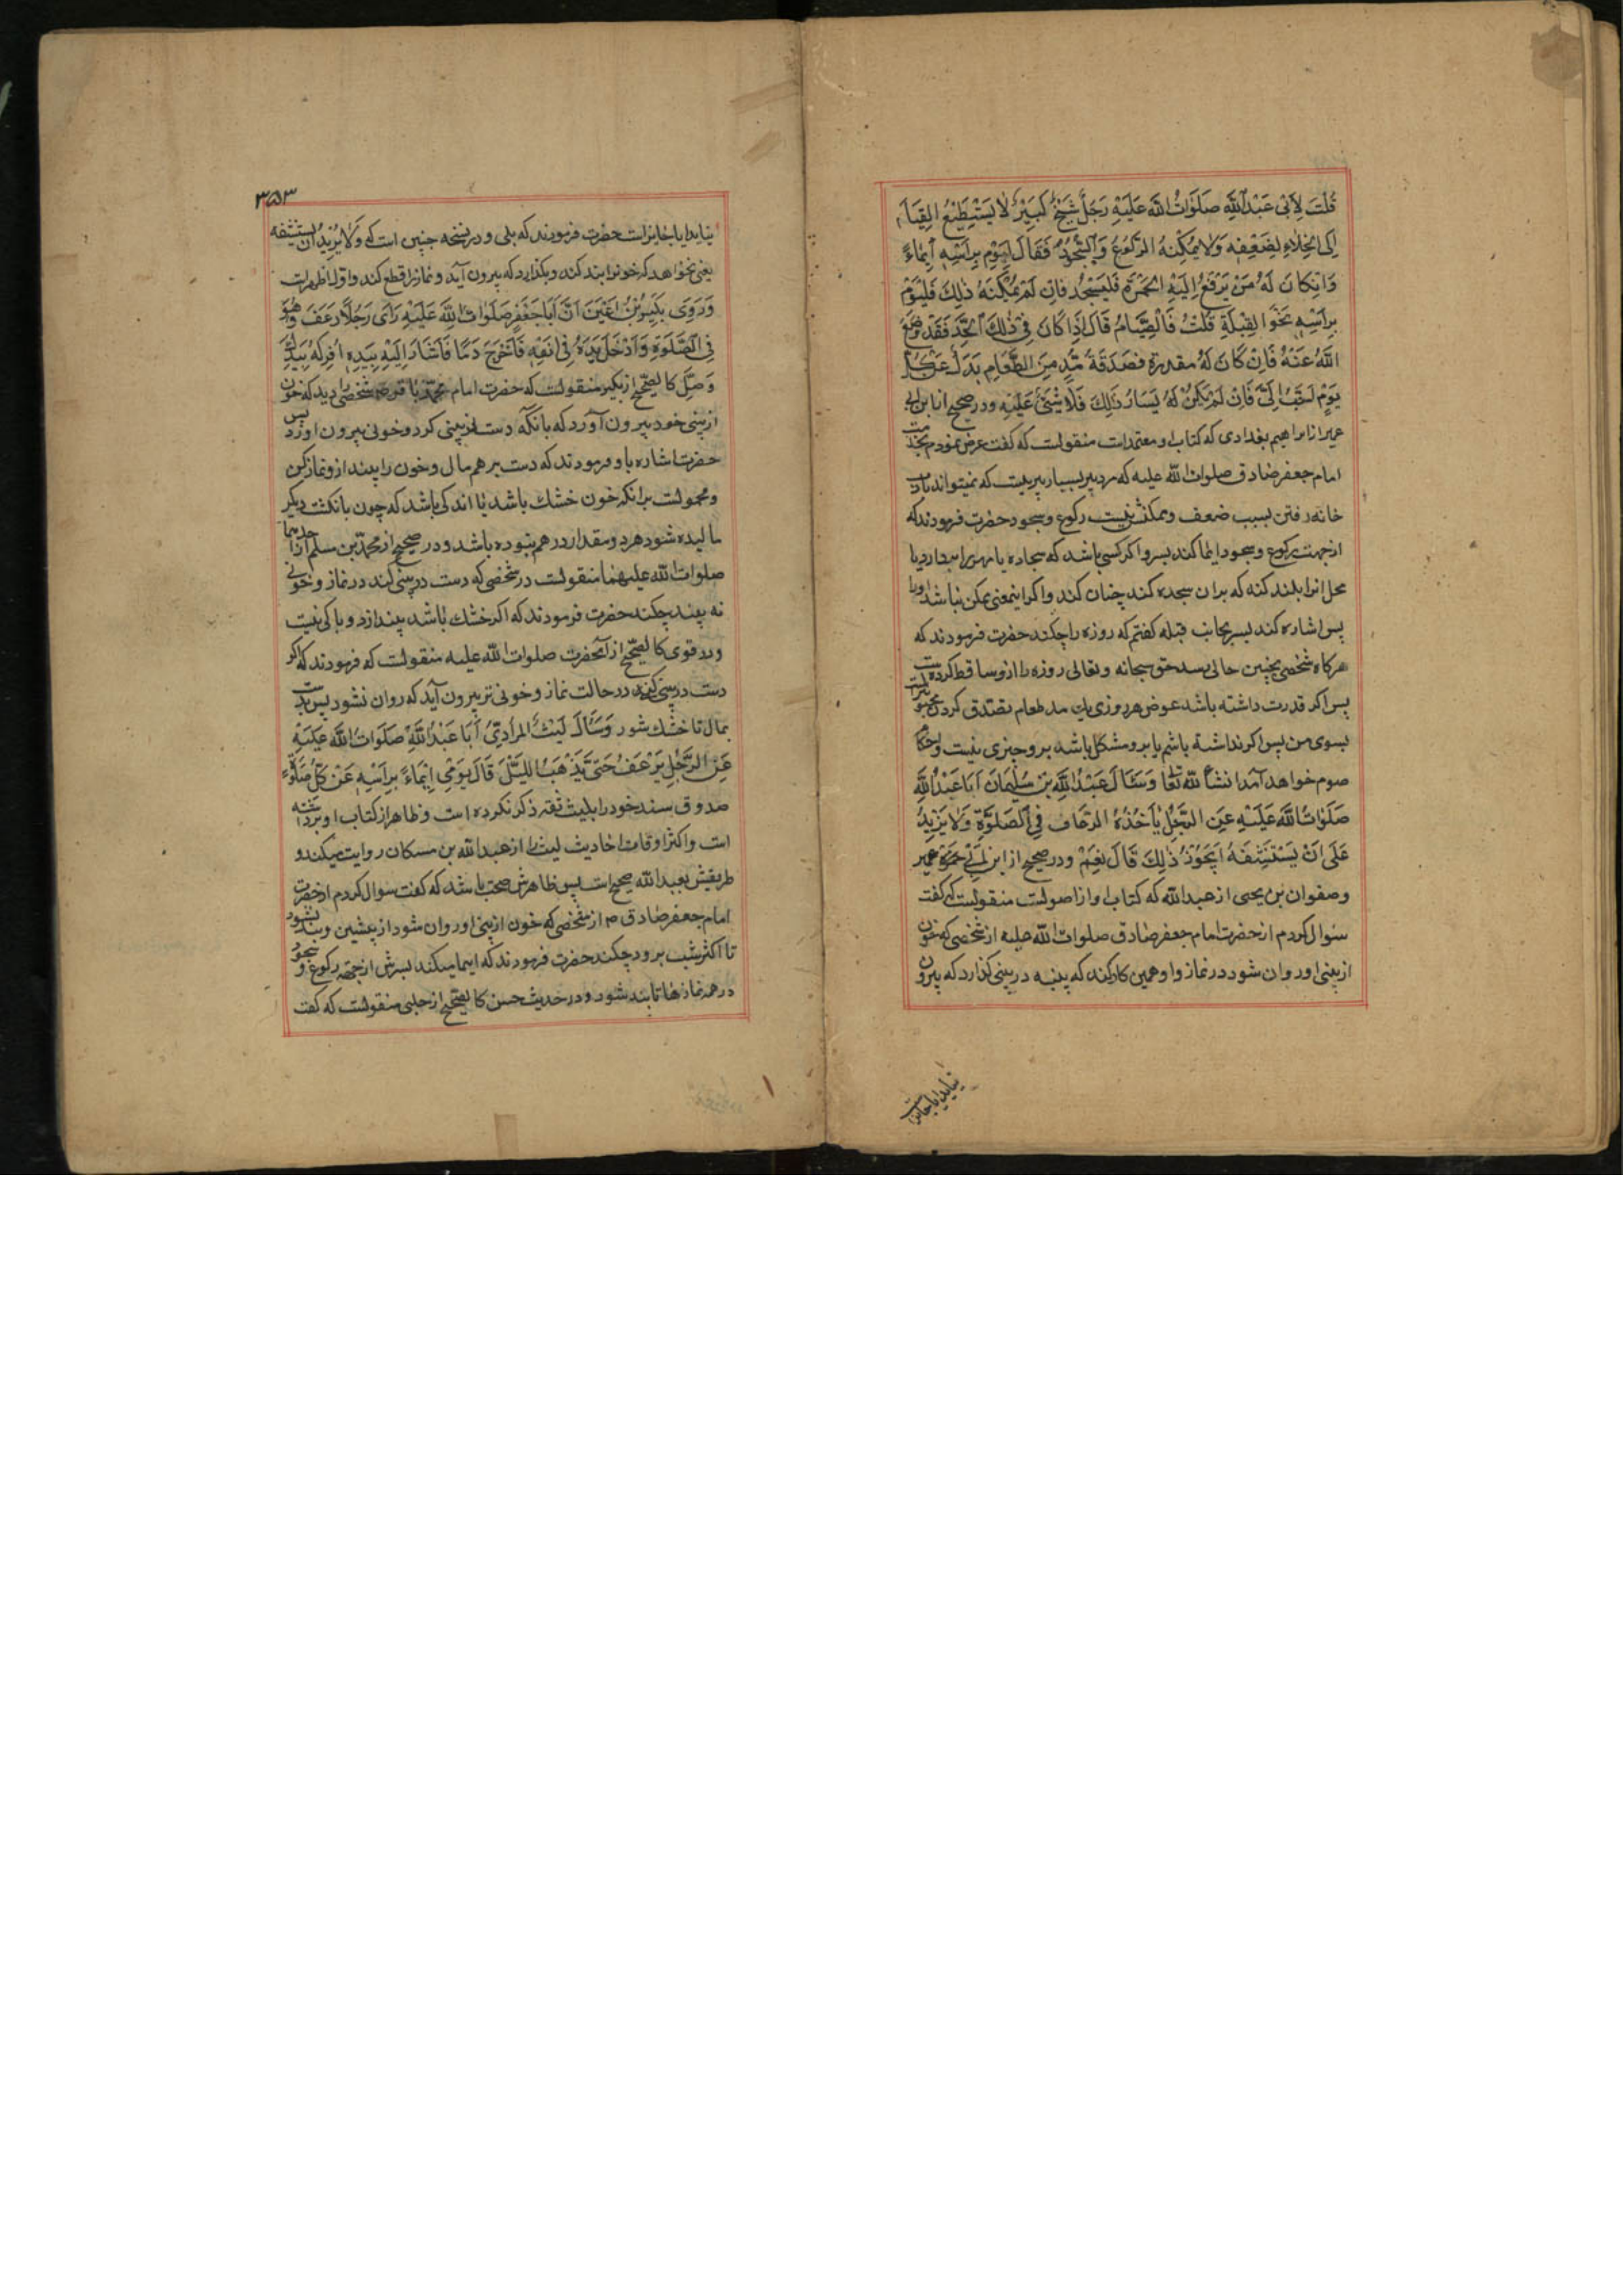 قُلْتُ لِأَبِی عَبْدِاللّهِ صَلَوَاتُ اللّه عَلَیْهِ رَجُلٌ شَیْخٌ کَبِیْرٌ لَا یَسْتَطِیْعُ القِیَامَ
اِلَی الخَلاءِ لِضَعْفِهِ وَلَا یُمْکِنُهُ الرُّکُوعُ وَالسُّجُودُ فَقَالَ لِیُوْمِ بِرَأسِهِ اِیْمَاءً
وَاِنْ کَانَ لَهُ مَنْ یَرْفَعُ اِلَیْهِ الخُمْرَةَ فَلْیَسْجُدْ فَاِنْ لَمْ یُمْکِنْهُ ذٰلِكَ فَلْیُوْمِ
بِرَأسِهِ نَحْوَ القِبْلَةِ قُلْتُ فَالصِّیَامُ قَالَ اِذَا کَانَ فِی ذٰلِكَ الحَدِّ فَقَدْ وَضَعَ
اللّهُ عَنْهُ فَاِنْ کَانَ لَهُ مقدرة فَصَدَقَةُ مُدٍّ مِنَ الطَّعَامِ بَدَلَ عَنْ کُلِّ
یَوْمٍ اَحَبُّ اِلَیَّ فَاِنْ لَمْ یَکُنْ لَهُ یَسَارُ ذٰلِكَ فَلَا شَیْءَ عَلَیْهِ و در صحیح از ابن ابی
عمیر از ابراهیم بغدادی که کتاب او معتمدات منقولست که گفت عرض نمودم بخدمت
امام جعفر صادق صلوات اللّه علیه که مرد پیر بسیار پیریست که نمیتواند بادب
خانه رفتن بسبب ضعف و ممکنش نیست رکوع و سجود حضرت فرمودند که
از جهت رکوع و سجود ایما کند بسر و اکر کسی باشد که سجاده یا مهر را بردارد یا
محل انرا بلند کند که بران سجده کند چنان کند و اکر اینمعنی ممکن نباشد او را
پس اشاره کند بسر بجانب قبله گفتم که روزه را چکند حضرت فرمودند که
هر کاه شخصی بچنین حالی رسد حق سبحانه و تعالی روزه را از و ساقط کرده است
پس اکر قدرت داشته باشد عوض هر روزی یك مد طعام تصدق کردن محبوبتر است
بسوی من پس اکر نداشته باشم یا برو مشکل باشد برو چیزی نیست و احکام
صوم خواهد آمد انشاء اللّه تعا وَسَئَالَ عَبْدُاللّهِ بْنِ سُلَیْمَانَ اَبَا عَبْدِاللّهِ
صَلَوَاتُ اللّه عَلَیْهِ عَنِ الرَّجُلِ یَأخُذُهُ الرُّعَافُ فِی الصَّلوٰةِ وَلَا یَزِیدُ
عَلَی اَنْ یَسْتَنْشِفَهُ اَیَجُوْزُ ذٰلِكَ قَالَ نَعَمْ و در صحیح از ابن ابی عمیر
و صفوان بن یحیی از عبد اللّه که کتاب او از اصولست منقولست که گفت
سئوال کردم از حضرت امام جعفر صادق صلوات اللّه علیه از شخصی که خون
از بینی او روان شود در نماز و او همین کار کند که پنبه در بینی گذارد که بیرون
نیاید ایا جایز است
۳۵۳
نیاید ایا جایز است حضرت فرمودند که بلی و در نسخه چنین است که وَلَا یُرِیْدُ اَنْ یَسْتَنْشِفَهُ
یعنی نخواهد که خونرا بند کند و بگذارد که بیرون آید و نماز را قطع کند و اول اظهر است
وَرَوَی بُکَیْرُ بْنُ اَعْیَنَ اَنَّ اَبَا جَعْفَرٍ صَلَوَاتُ اللّه عَلَیْهِ رَاٰی رَجُلًا رَعَفَ وَهُوَ
فِی الصَّلوٰةِ وَاَدْخَلَ یَدَهُ فِی اَنْفِهِ فَاَخْرَجَ دَمًا فَاَشَارَ اِلَیْهِ بِیَدِهِ اُفْرُکْهُ بِیَدِكَ
وَصَلِّ کالصحیح از بکیر منقولست که حضرت امام محمد باقر شخصی را دید که خون
از بینی خود بیرون آورد که بانکه دست در بینی کرد و خونی بیرون اورد پس
حضرت اشاره باو فرمودند که دست بر هم مال و خون را بینداز و نماز کن
و محمولست بر انکه خون خشك باشد یا اندکی باشد که چون بانکشت دیگر
مالیده شود هرد و مقدار درهم نبوده باشد و در صحیح از محمد بن مسلم از احدهما
صلوات اللّه علیهما منقولست در شخصی که دست در بینی کند در نماز و خونی
به بیند چکند حضرت فرمودند که اکر خشك باشد بیندازد و باکی نیست
و در قوی کالصحیح از آنحضرت صلوات اللّه علیه منقولست که فرمودند که اکر
دست در بینی کند در حالت نماز و خونی تر بیرون آید که روان نشود پس بدست
بمال تا خشك شود وَسَأَلَ لَیْثُ المُرَادِیُّ أَبَا عَبْدِاللّهِ صَلَوَاتُ اللّه عَلَیْهِ
عَنِ الرَّجُلِ یَرْعَفُ حَتّیٰ یَذْهَبُ اللَّیْلَ قَالَ یَوْمِی اِیْمَاءً بِرَاسِهِ عَنْ کُلِّ صَلوٰةٍ
صدوق سند خود را بلیث ثقه ذکر نکرده است و ظاهرا از کتاب او برداشته
است و اکثر اوقات احادیث لیث را از عبداللّه بن مسکان روایت میکند و
طریقش بعبداللّه صحیح است پس ظاهرش صحت باشد که گفت سوال کردم از حضرت
امام جعفر صادق ص از شخصی که خون از بینی او روان شود از پیشین و بند نشود
تا اکثر شب برود چکند حضرت فرمودند که ایما میکند بسرش از جهة رکوع و سجود
در همه نمازها تا بند شود و در حدیث حسن کالصحیح از حلبی منقولست که گفت